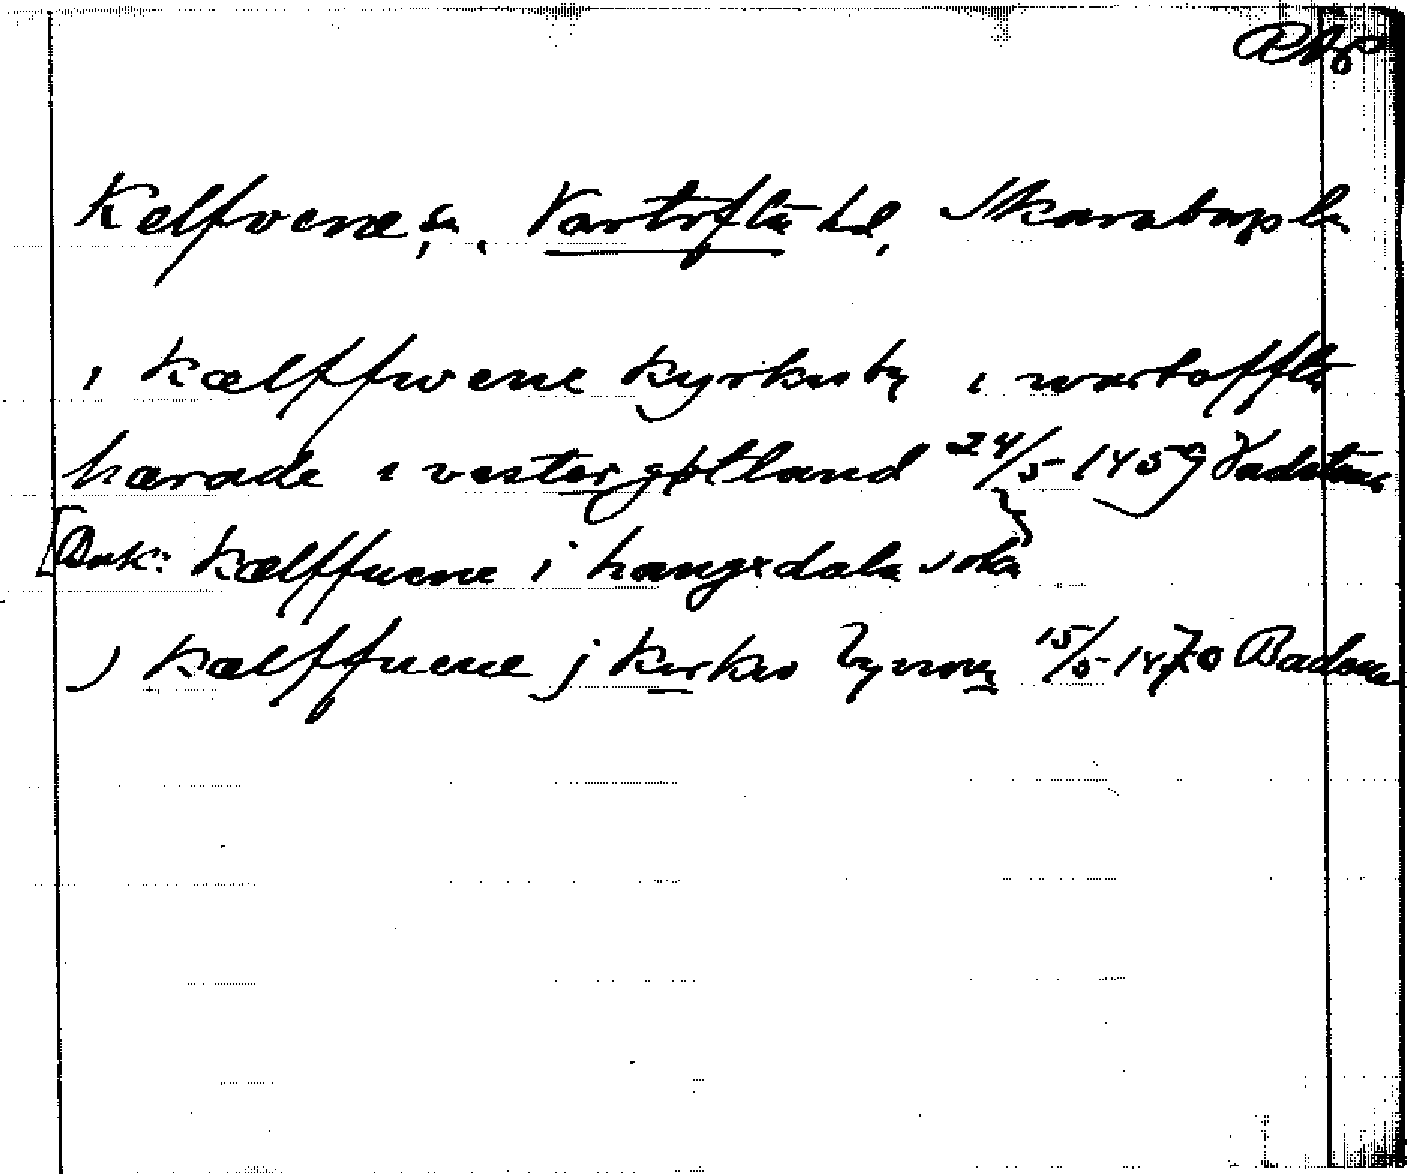 RAp
Kelfvene, sn. Vartofta hd, Skaraborgs län
i kælffwene kyrkio by i wartoffta
hærade i vestergøtland 24/5 1459 Vadstena
[Bak: kælffuene i hangxdala sokn]
j kælffuene j kirkio bynom 15/5 1470